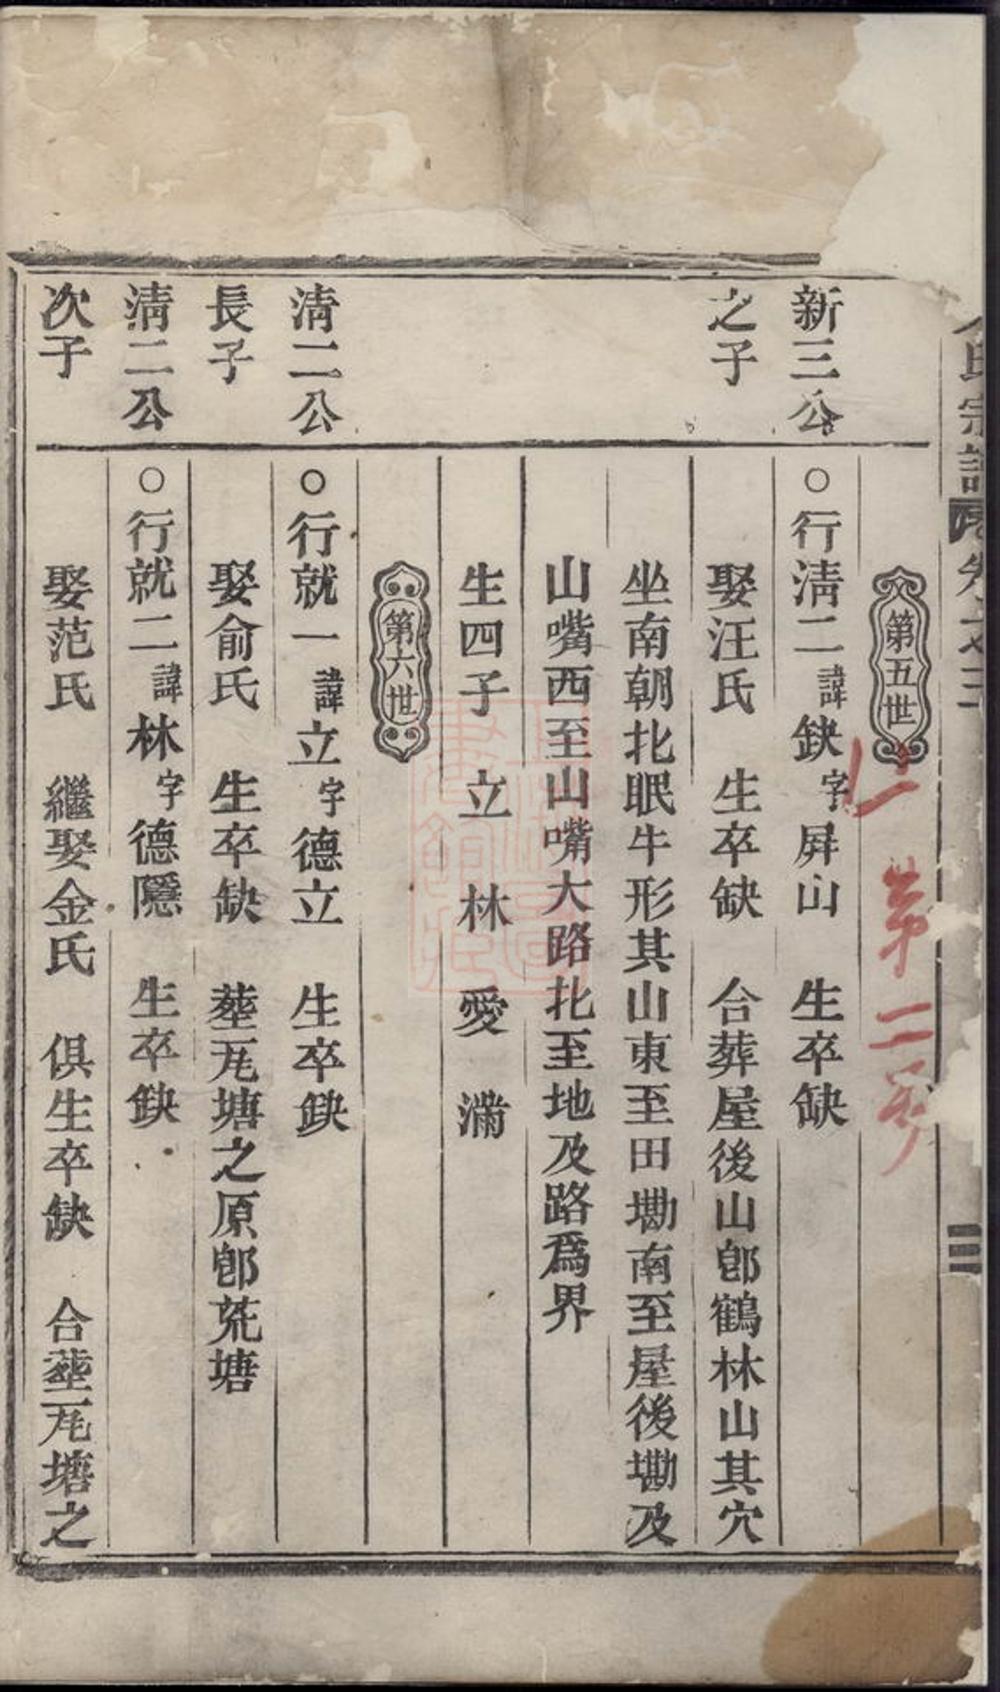 氏宗譜 卷之二 三
仁 第二房
第五世
新三公 ○行淸二諱缺字屛山 生卒缺
之子 娶汪氏 生卒缺 合葬屋後山卽鶴林山其穴
坐南朝北眠牛形其山東至田墈南至屋後墈及
山嘴西至山嘴大路北至地及路爲界
生四子 立 林 愛 滿
第六世
淸二公 ○行就一諱立字德立 生卒缺
長子 娶俞氏 生卒缺 塟瓦塘之原卽荒塘
淸二公 ○行就二諱林字德隱 生卒缺
次子 娶范氏 繼娶金氏 俱生卒缺 合塟瓦塘之